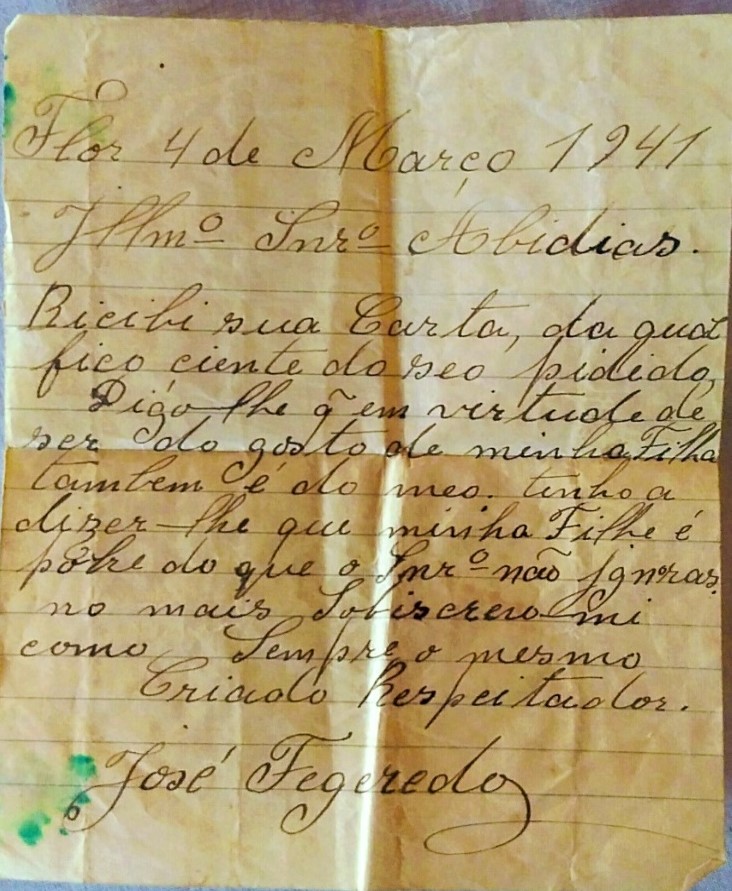 Flor 4 de Março 1941
Illmº Snrº Abidias.
Ricibi sua Carta, da qual
fico ciente do seo pidido,
Digo-lhe q̃ em virtude de
ser do gosto de minha Filha
tambem é do meo. tenho a
dizer-lhe que minha Filhe é
pobre do que o Snrº não ignoras.
no mais Sobiscrevo-mi
como Sempre o mesmo
Criado Respeitador.
José Fegeredo